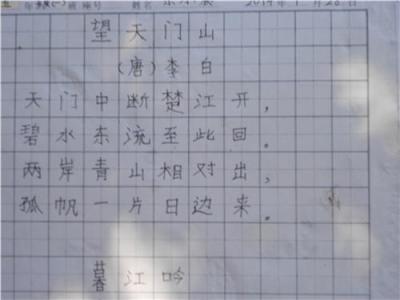 年级(一)班 座号 姓名 2014年1月28日
望天门山
(唐)李白
天门中断楚江开,
碧水东流至此回。
两岸青山相对出,
孤帆一片日边来。
暮江吟